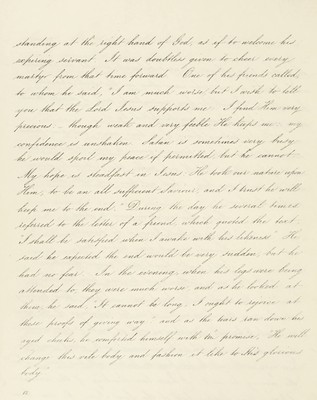 standing at the right hand of God, as if to welcome his
expiring servant. It was doubtless given to cheer every
martyr from that time forward. One of his friends called,
to whom he said, "I am much worse but I wish to tell
you that the Lord Jesus supports me. I find Him very
precious - though weak and very feeble He keeps me - my
confidence is unshaken. Satan is sometimes very busy
he would spoil my peace if permitted, but he cannot -
My hope is steadfast in Jesus. He took our nature upon
Him, to be an all sufficient Saviour, and I trust he will
keep me to the end." During the day he several times
referred to the letter of a friend, which quoted the text
I shall be satisfied when I awake with his likeness" He
said he expected the end would be very sudden, but he
had no fear. In the evening, when his legs were being
attended to, they were much worse, and as he looked at
them, he said, "It cannot be long, I ought to rejoice at
these proofs of giving way" and as the tears ran down his
aged cheeks, he comforted himself with the promise, "He will
change this vile body and fashion it like to His glorious
body"